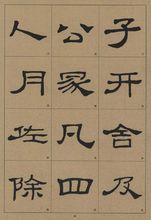 子开舍及
公冢凡四
人月佐除